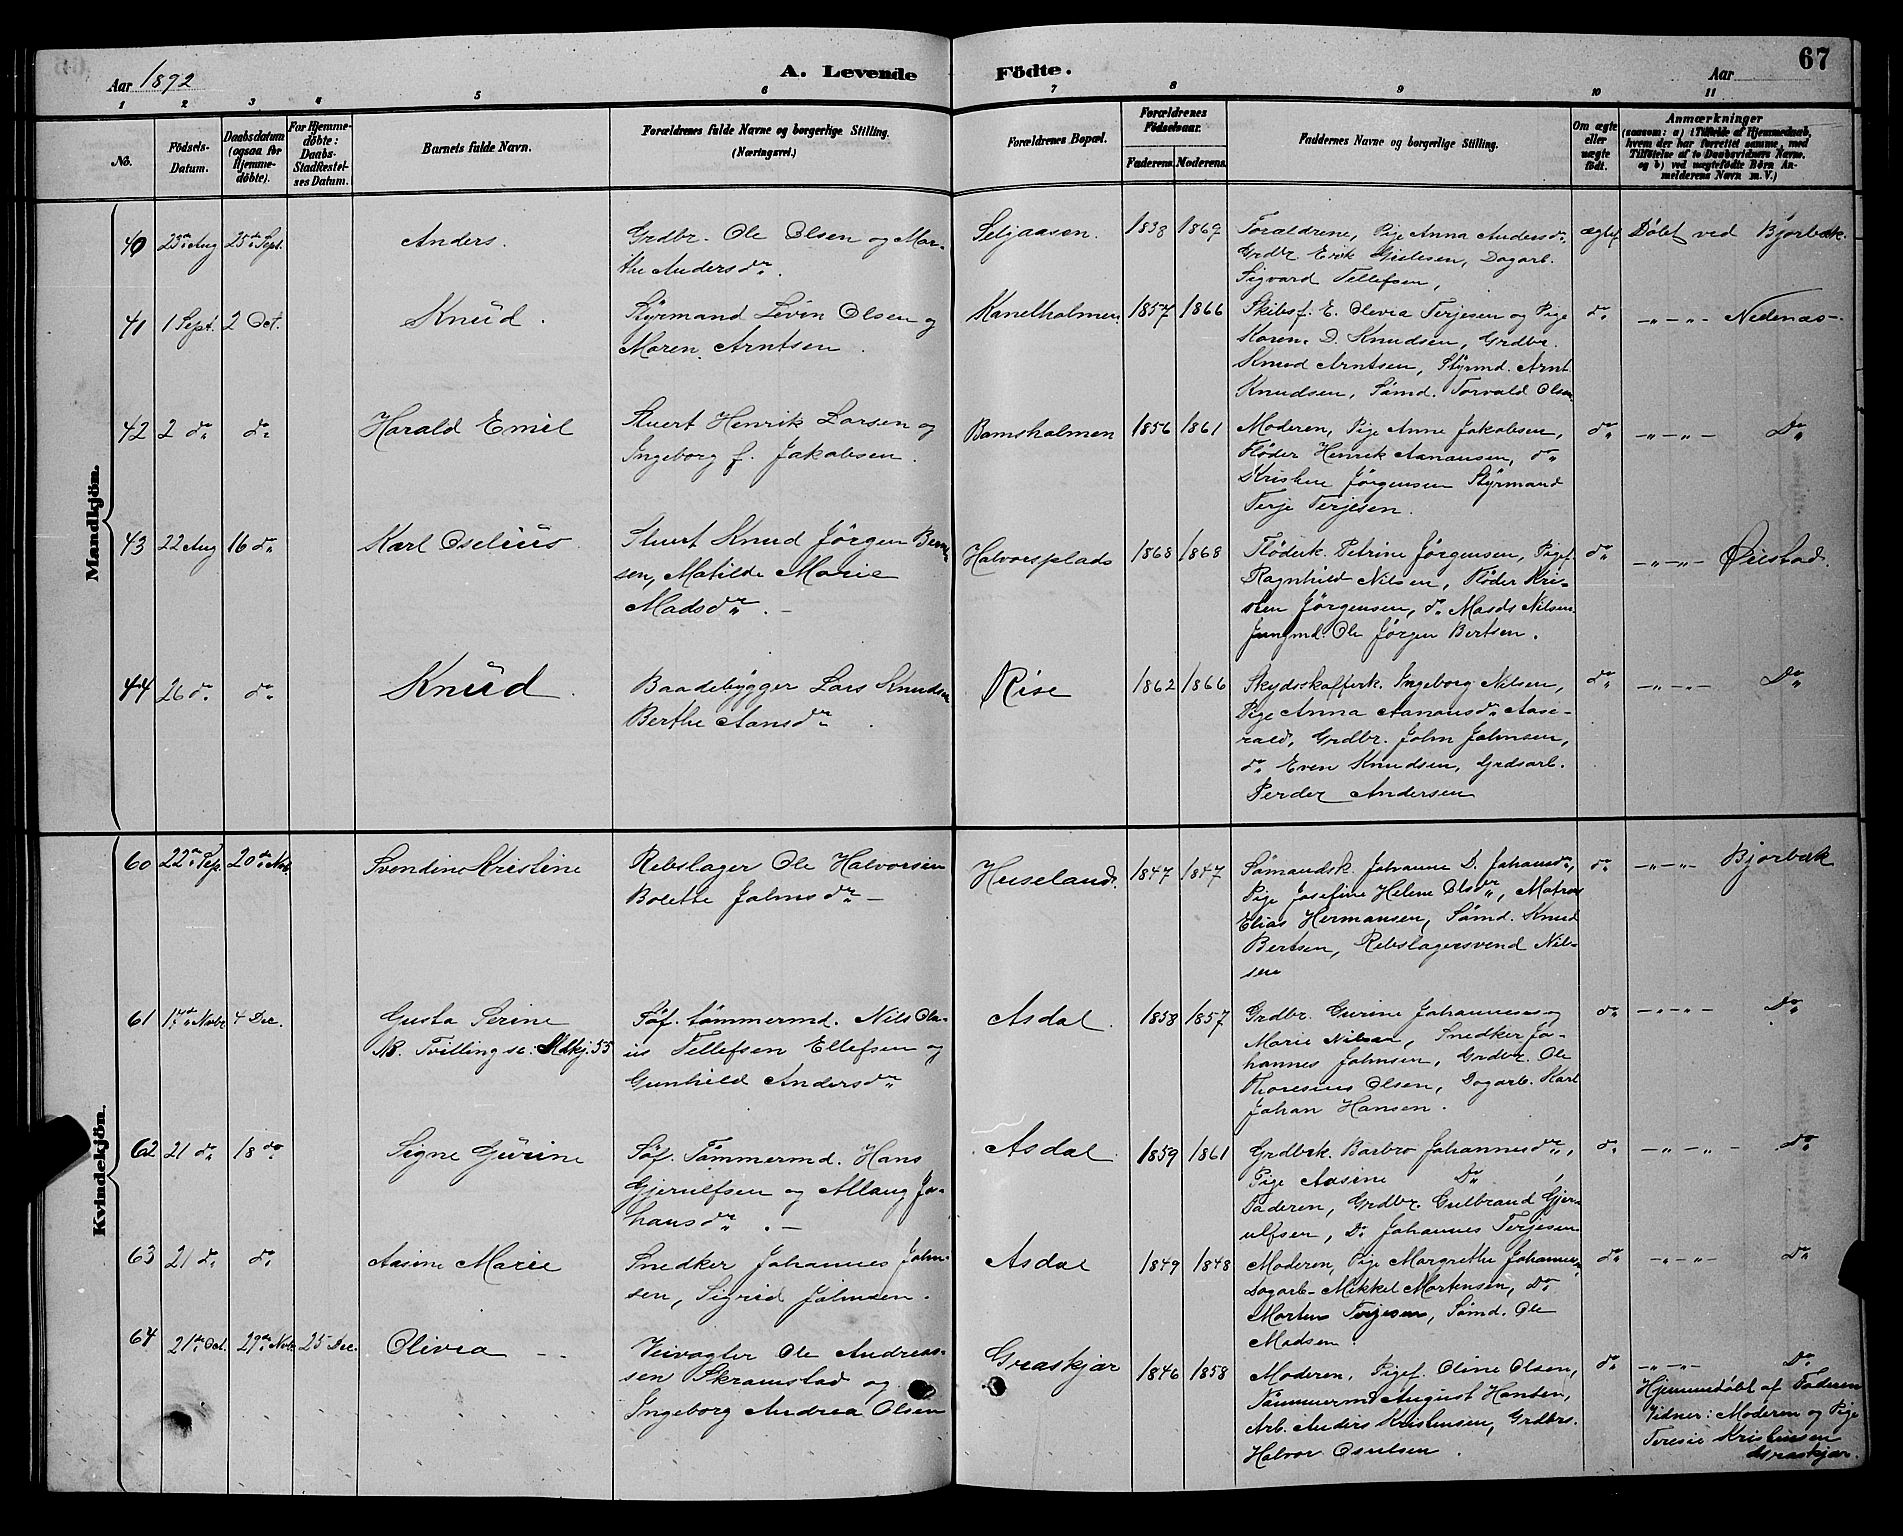 67
Aar 1892
A. Levende Födte.
Aar
1 2 3 4 5 6 7 8 9 10 11
No.
Födsels-Datum.
Daabsdatum (ogsaa for Hjemme-döbte).
For Hjemme-döbte: Daabs-Stadfæstel-ses Datum.
Barnets fulde Navn.
Forældrenes fulde Navne og borgerlige Stilling.
(Næringsvei.)
Forældrenes Bopæl.
Forældrenes Födselsaar.
Faderens. Moderens.
Faddernes Navne og borgerlige Stilling.
Om ægte eller uægte födt.
Anmærkninger
(saasom: a) i Tilfælde af Hjemmedaab,
hvem der har forrettet samme, med
Tilföielse af to Daabsvidners Navne.
og b) ved uægtefödte Börn An-
melderens Navn m. V.)
Mandkjön.
40 23de Aug 25de Sept. Anders.
Grdbr. Ole Olsen og Mar-
the Andersdr.
Seljaasen. 1838 1869
Forældrene, Pige Anna Andersdr.
Grdbr Erik Dagarb.
Sigvard Tellefsen,
ægtef Døbt ved Bjorbæk.
41 1 Sept. 2 Oct. Knud.
Styrmand Lövin Olsen og
Maren Arntsen.
Kanelholmen. 1857 1866
Skibsf. E. Olevia Terjesen og Pige
Karen D. Knudsen, Grdbr.
Knud Arntsen, Styrmd. Arnt
Knudsen, Sømd. Torvald Olsen
do -"-"- Nedenæs-
42 2 do do Harald Emil
Stuert Henrik Larsen og
Ingeborg f. Jakobsen.
Bomsholmen 1856 1861
Moderen, Pige Anne Jakobsen,
Fløder Henrik Aanansen, do
Kristen Jørgensen Styrmand
Terje Terjesen.
do -"-"- Do
43 22 Aug 16 do Karl Oselius
Stuert Knud Jörgen Bern-
sen, Matilde Marie
Madsdr. -
Halvorsplads 1868 1868
Fløderk. Petrine Jørgensen, Pigef.
Ragnhild Nilsen, Fløder Kri-
sten Jørgensen, do Mads Nilsen
Jungmd. Ole Jørgen Bertsen.
do -"-"- Øiestad.
44 26 do do Knud.
Baadebygger Lars Knudsen
Berthe Aansdr.
Rise 1862 1866
Skydsskafferk. Ingeborg Nilsen,
Pige Anna Aanonsdr. Aase-
rald, Grdbr. John Johnsen,
do Even Knudsen, Grdsarb.
Peder Andersen
do -"-"- Do
Kvindekjön.
60 22de Sep. 20de Nov. Svendine Kristine
Rebslager Ole Halvorsen
Bolette Johnsdr -
Huseland. 1847 1847
Sømandsk. Johanne D. Johansdr.,
Pige Josefine Helene Olsdr, Matros
Elias Hermansen, Sømd. Knud
Bertsen, Rebslagersvend Nil-
sen
do -"-"- Bjorbæk
61 17de Novbr 4 Dec. Gusta Serine
NB. Tvilling se: Mdkj. 55
Søf. tømmermd. Nils Ola-
us Tellefsen Ellefsen og
Gunhild Andersdr
Asdal. 1858 1857
Grdbr. Gurine Johannesen og
Marie Nilsen, Snedker Jo-
hannes Johnsen, Grdbr. Ole
Thoresius Olsen, Dagarb. Karl
Johan Hansen.
do -"-"- Do
62 21 do 18 do Signe Gurine
Søf. Tømmermd. Hans
Gjerulfsen og Allaug Jo-
hansdr. -
Asdal. 1859 1861
Grdbrk. Barbro Johannesdr,
Pige Aasine Do,
Faderen, Grdbr. Gulbrand Gjer-
ulfsen, Do Johannes Terjesen
do -"-"- Do
63 21 do do Aasine Marie
Snedker Johannes John-
sen, Sigrid Johnsen.
Asdal 1849 1848
Moderen, Pige Margrethe Johannesen,
Dagarb. Mikkel Mortensen, Do
Morten Terjesen, Sømd. Ole
Madsen.
do -"-"- Do
64 21de Oct. 29de Nov. 25 Dec. Olivea - -
Veivogter Ole Andreas-
sen Skramstad og
Ingeborg Andrea Olsen
Græskjær 1846 1858
Moderen, Pigef. Oline Olsen,
Tømmermd August Hansen,
Arb. Anders Kristensen, Grdbrs.
Halvor Osulsen.
do -"-"- Do
Hjemmedøbt af Faderen
Vidner: Moderen og Pige
Teresie Kristensen
Græskjær.